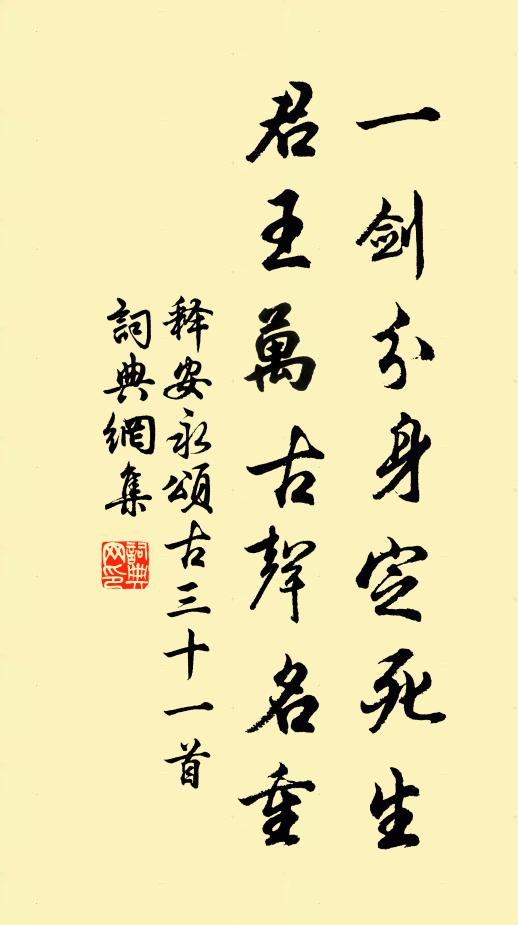 一剑分身定死生
君王萬古聲名重
释安永頌古三十一首
詞典網集
詞典网印